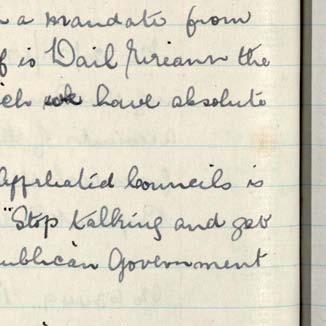 a mandate from
f is Dail Eireann the
ich we have absolute
Appreliatéd Councils is
"Stop talking and get
ublican Government